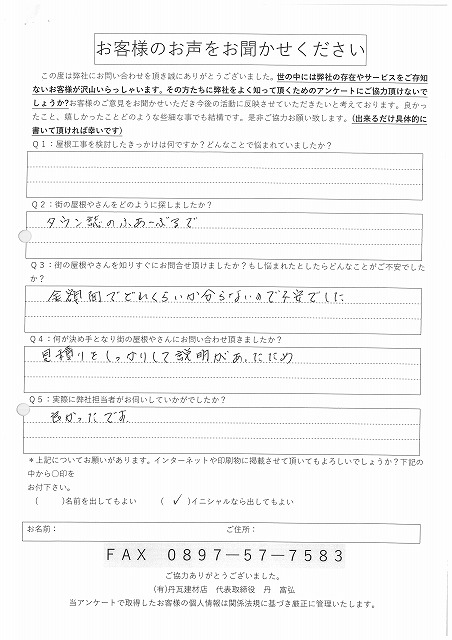 お客様のお声をお聞かせください
この度は弊社にお問い合わせを頂き誠にありがとうございました。世の中には弊社の存在やサービスをご存知
ないお客様が沢山いらっしゃいます。その方たちに弊社をよく知って頂くためのアンケートにご協力頂けないで
しょうか?お客様のご意見をお聞かせいただき今後の活動に反映させていただきたいと考えております。良かっ
たこと、嬉しかったことどのような些細な事でも結構です。是非ご協力お願い致します。(出来るだけ具体的に
書いて頂ければ幸いです)
Q1:屋根工事を検討したきっかけは何ですか?どんなことで悩まれていましたか?
Q2:街の屋根やさんをどのように探しましたか?
タウン誌のふあーぶるで
Q3:街の屋根やさんを知りすぐにお問合せ頂けましたか?もし悩まれたとしたらどんなことがご不安でした
か?
金額面でどれくらいか分らないので不安でした
Q4:何が決め手となり街の屋根やさんにお問い合わせ頂きましたか?
見積りをしっかりして説明があったため
Q5:実際に弊社担当者がお伺いしていかがでしたか?
良かったです。
*上記についてお願いがあります。インターネットや印刷物に掲載させて頂いてもよろしいでしょうか?下記の
中から〇印を
お付下さい。
( )名前を出してもよい (✓)イニシャルなら出してもよい
お名前: ご住所:
FAX 0897―57―7583
ご協力ありがとうございました。
(有)丹瓦建材店 代表取締役 丹 富弘
当アンケートで取得したお客様の個人情報は関係法規に基づき厳正に管理いたします。